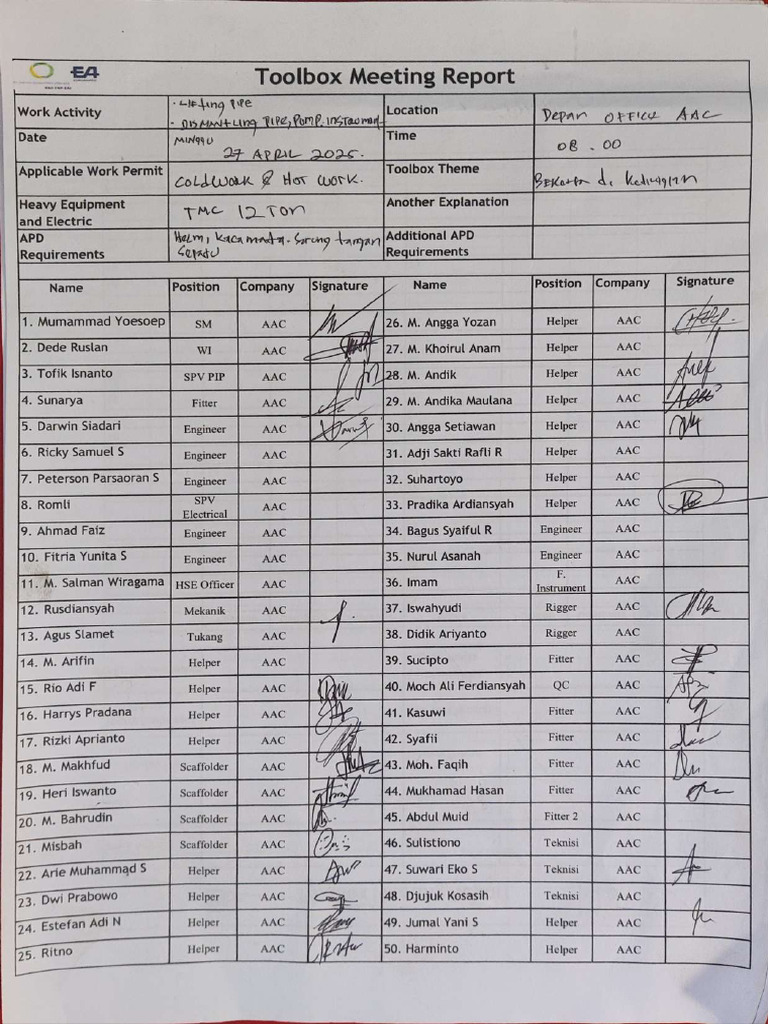 EA
Toolbox Meeting Report
Work Activity
- Lifting PIPE
- DISMANTLING PIPE, POMP, INSTRUMENT
Location
Depan OFFICE AAC
Date
MINGGU
27 APRIL 2025.
Time
08.00
Applicable Work Permit
COLDWORK & HOT WORK.
Toolbox Theme
Bekerja di Ketinggian
Heavy Equipment
and Electric
TMC 12 TON
Another Explanation
APD
Requirements
Helm, kacamata. Sarung tangan
Sepatu
Additional APD
Requirements
Name Position Company Signature Name Position Company Signature
1. Mumammad Yoesoep SM AAC 26. M. Angga Yozan Helper AAC
2. Dede Ruslan WI AAC 27. M. Khoirul Anam Helper AAC
3. Tofik Isnanto SPV PIP AAC 28. M. Andik Helper AAC
4. Sunarya Fitter AAC 29. M. Andika Maulana Helper AAC
5. Darwin Siadari Engineer AAC 30. Angga Setiawan Helper AAC
6. Ricky Samuel S Engineer AAC 31. Adji Sakti Rafli R Helper AAC
7. Peterson Parsaoran S Engineer AAC 32. Suhartoyo Helper AAC
8. Romli SPV Electrical AAC 33. Pradika Ardiansyah Helper AAC
9. Ahmad Faiz Engineer AAC 34. Bagus Syaiful R Engineer AAC
10. Fitria Yunita S Engineer AAC 35. Nurul Asanah Engineer AAC
11. M. Salman Wiragama HSE Officer AAC 36. Imam F. Instrument AAC
12. Rusdiansyah Mekanik AAC 37. Iswahyudi Rigger AAC
13. Agus Slamet Tukang AAC 38. Didik Ariyanto Rigger AAC
14. M. Arifin Helper AAC 39. Sucipto Fitter AAC
15. Rio Adi F Helper AAC 40. Moch Ali Ferdiansyah QC AAC
16. Harrys Pradana Helper AAC 41. Kasuwi Fitter AAC
17. Rizki Aprianto Helper AAC 42. Syafii Fitter AAC
18. M. Makhfud Scaffolder AAC 43. Moh. Faqih Fitter AAC
19. Heri Iswanto Scaffolder AAC 44. Mukhamad Hasan Fitter AAC
20. M. Bahrudin Scaffolder AAC 45. Abdul Muid Fitter 2 AAC
21. Misbah Scaffolder AAC 46. Sulistiono Teknisi AAC
22. Arie Muhammad S Helper AAC 47. Suwari Eko S Teknisi AAC
23. Dwi Prabowo Helper AAC 48. Djujuk Kosasih Teknisi AAC
24. Estefan Adi N Helper AAC 49. Jumal Yani S Helper AAC
25. Ritno Helper AAC 50. Harminto Helper AAC